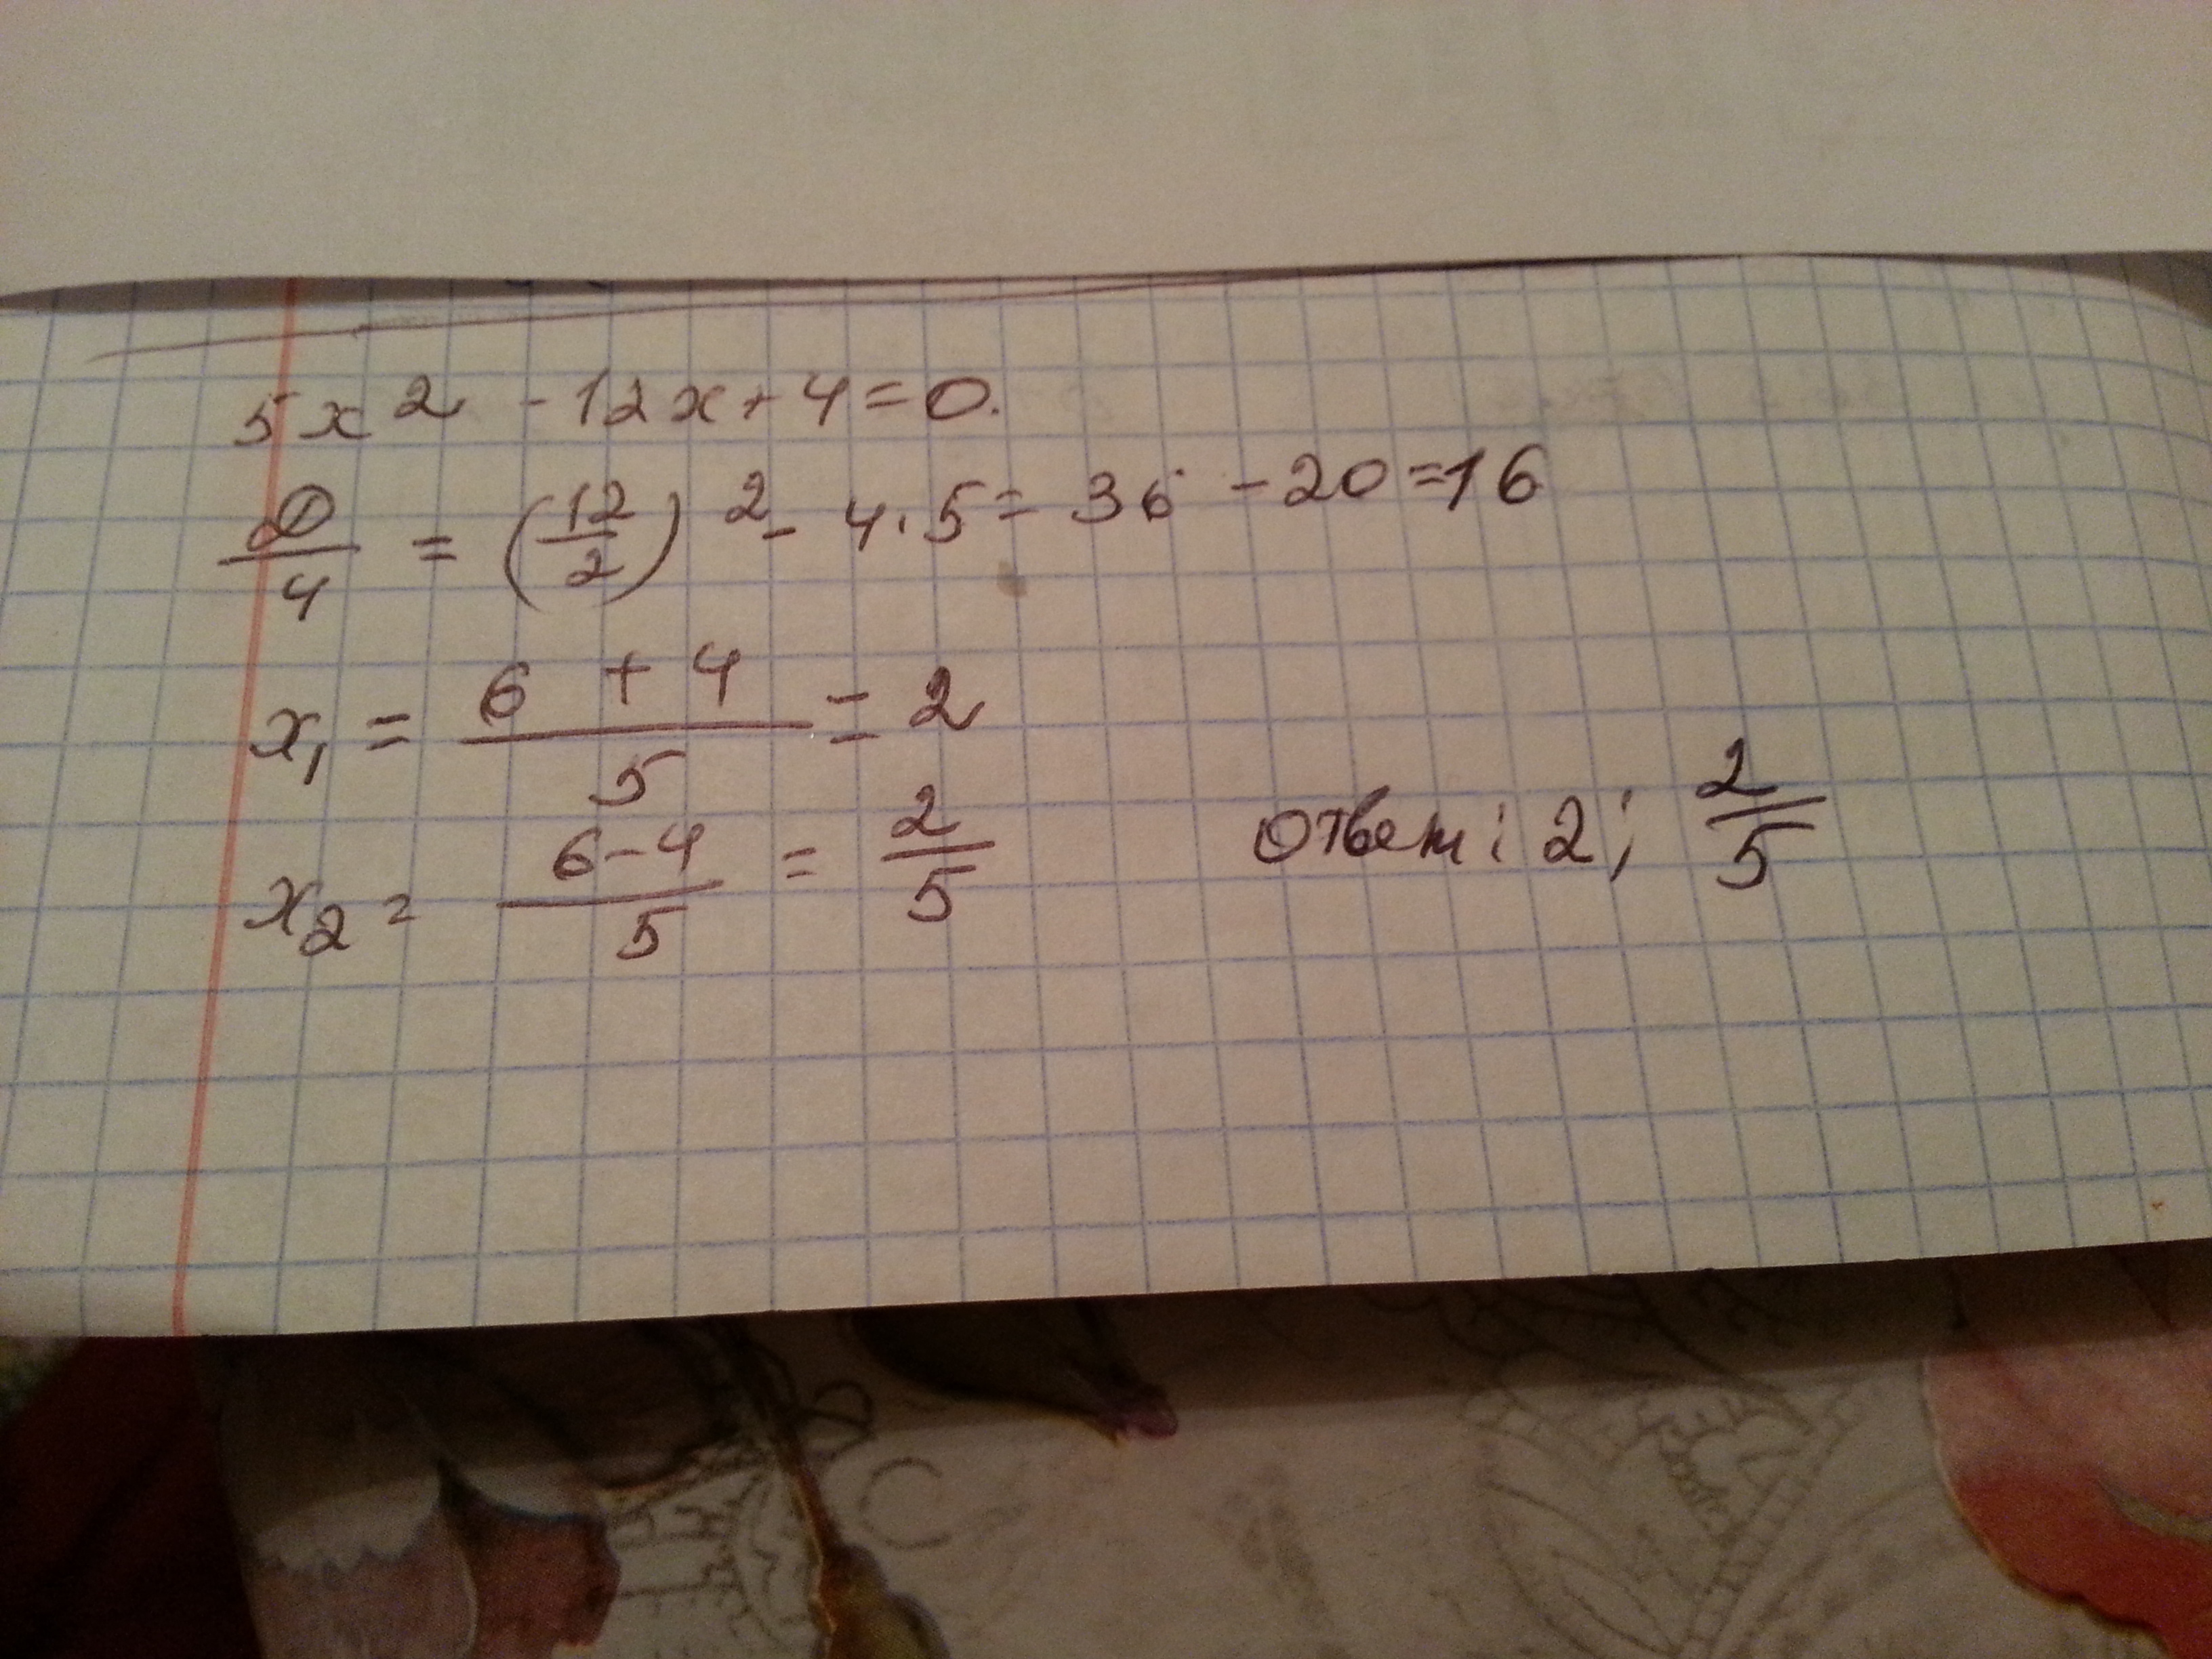 5x² - 12x + 4 = 0.
D/4 = (12/2)² - 4 · 5 = 36 - 20 = 16
x₁ = (6 + 4)/5 = 2
x₂ = (6 - 4)/5 = 2/5
Ответ: 2; 2/5